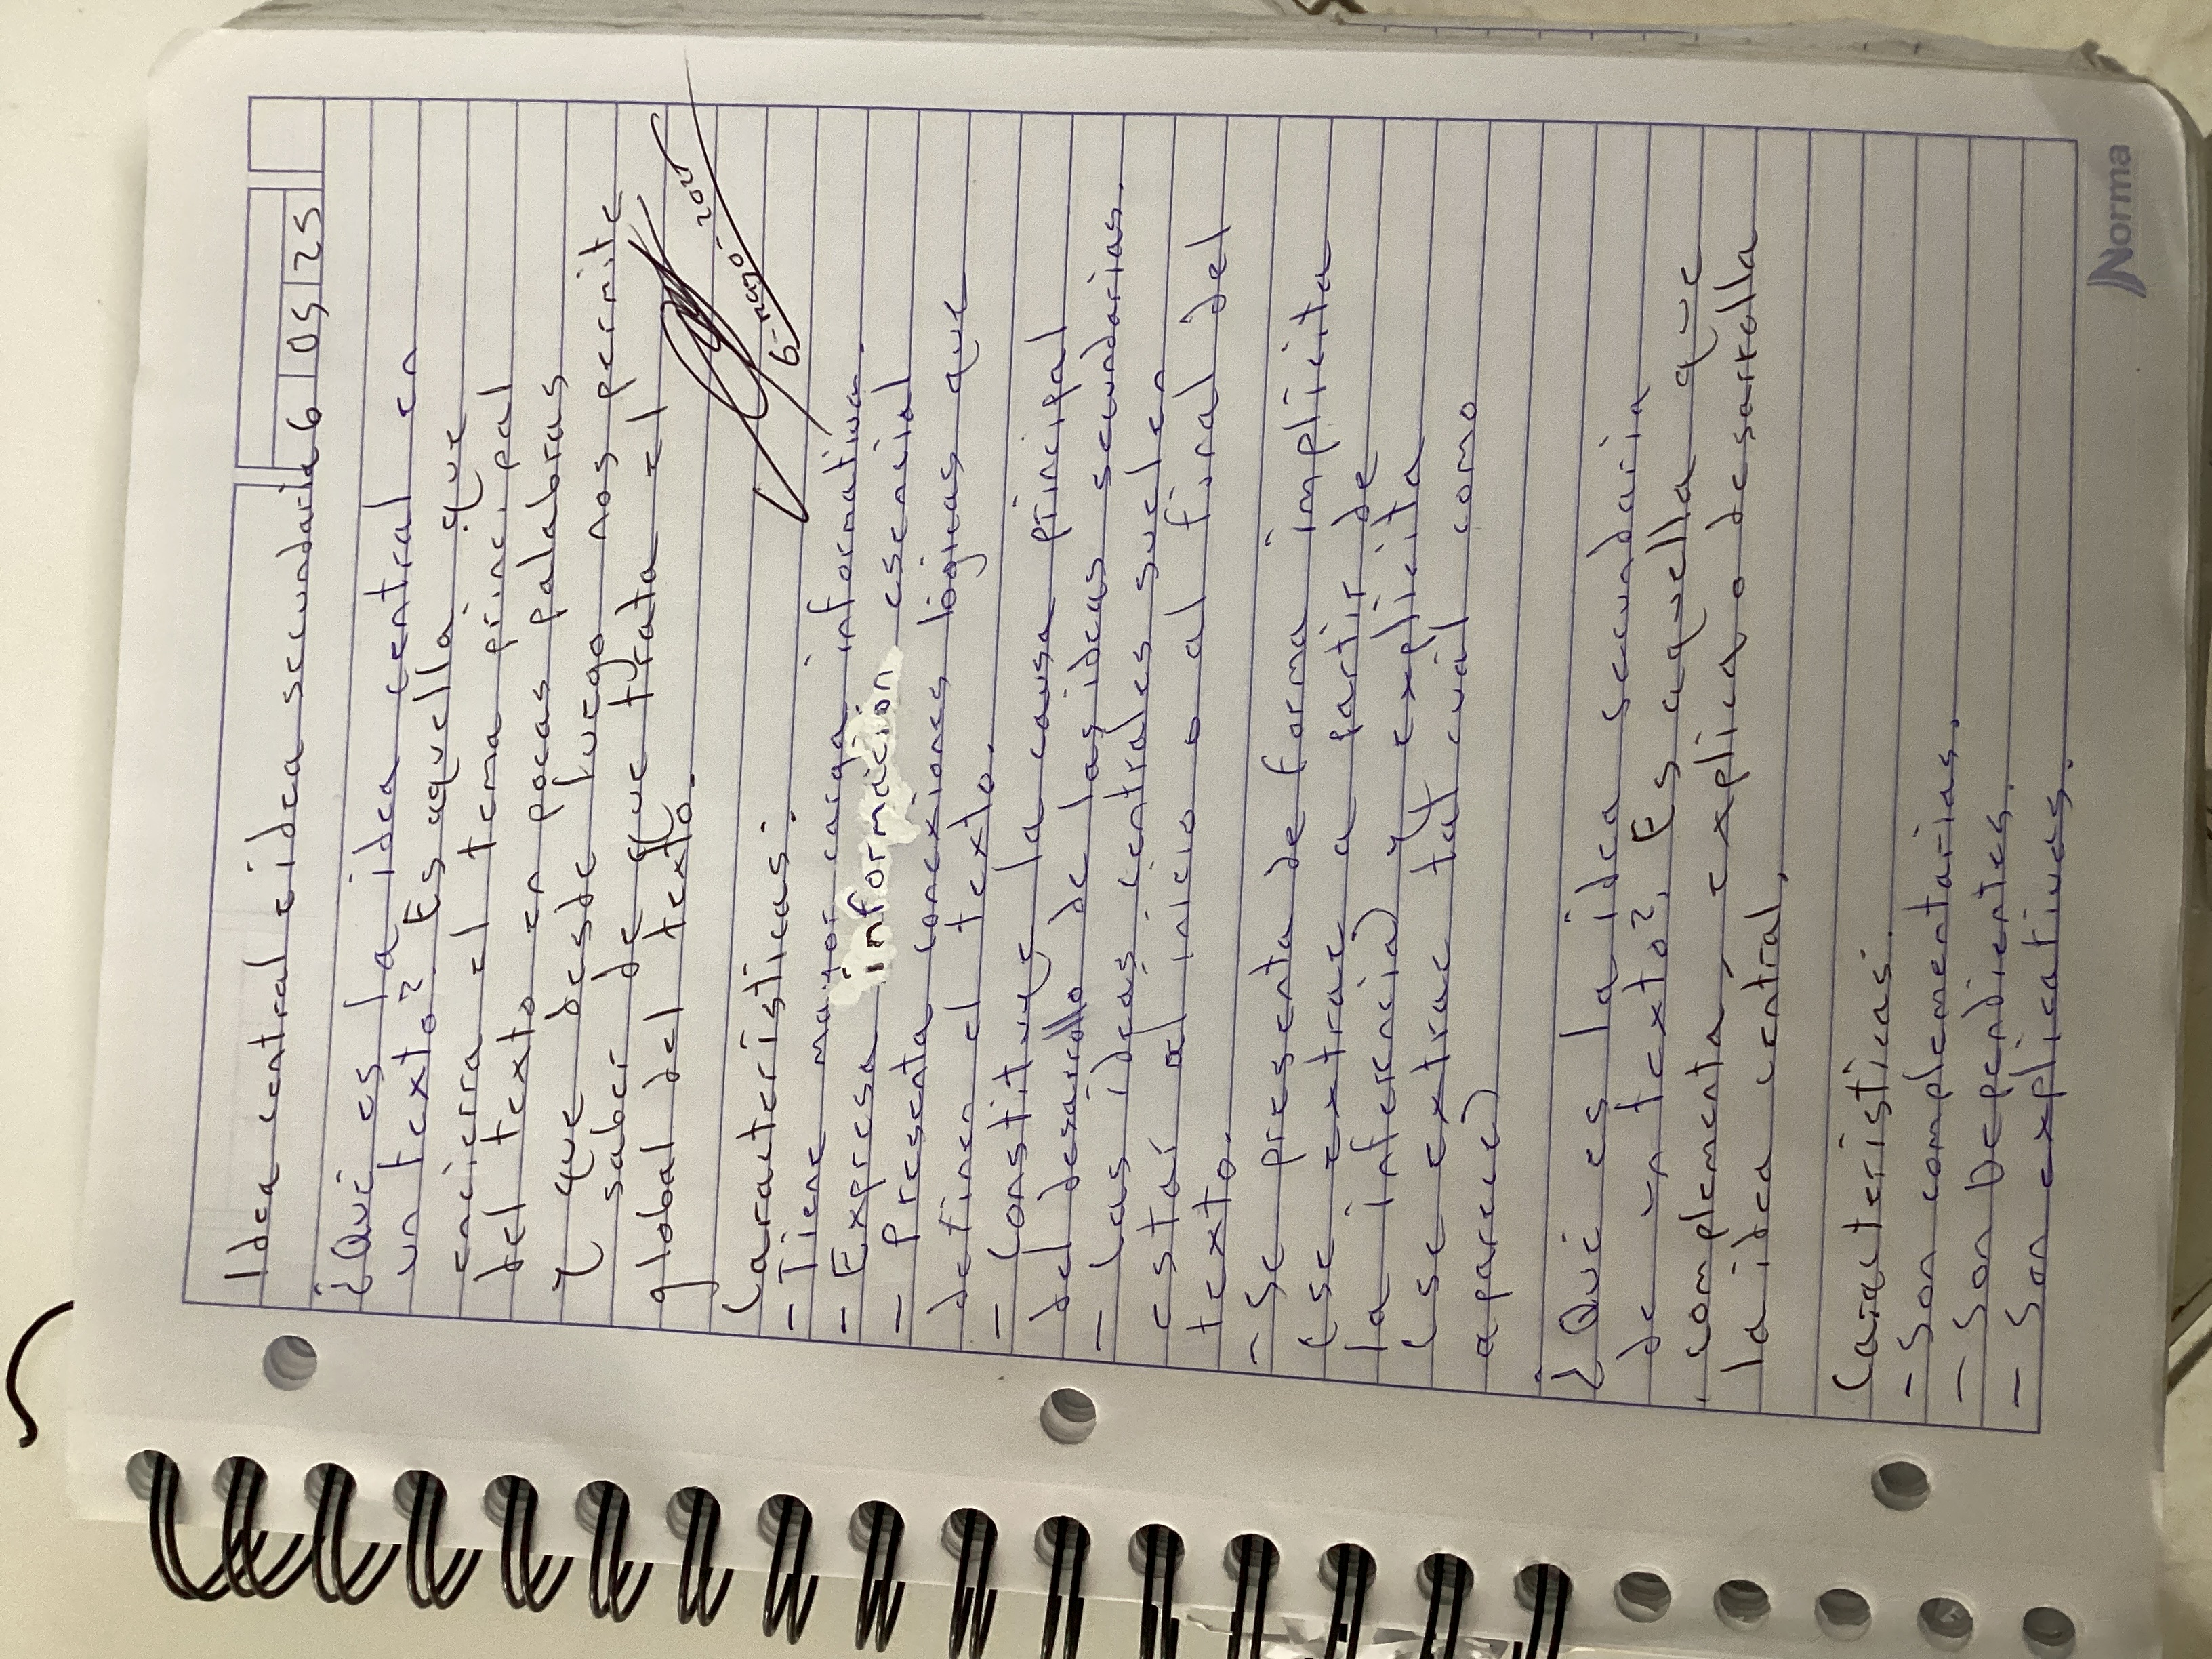 Idea central e idea secundaria 6 05 25
¿Qué es la idea central en
un texto? Es aquella que
encierra el tema principal
del texto en pocas palabras
y que desde luego nos permite
saber de que trata el
global del texto.
6-mayo-2025
Características:
- Tiene mayor carga informativa.
- Expresa información esencial
- Presenta conexiones lógicas que
definen el texto.
- Constituye la causa principal
del desarrollo de las ideas secundarias.
- Las ideas centrales suelen
estar al inicio o al final del
texto.
- Se presenta de forma implicita
(se extrae a partir de
la inferencia) y explicita
(se extrae tal cual como
aparece)
¿Qué es la idea secundaria
de un texto? Es aquella que
complementa, explica o desarrolla
la idea central.
Características:
- Son complementarias.
- Son Dependientes.
- Son explicativas.
Norma